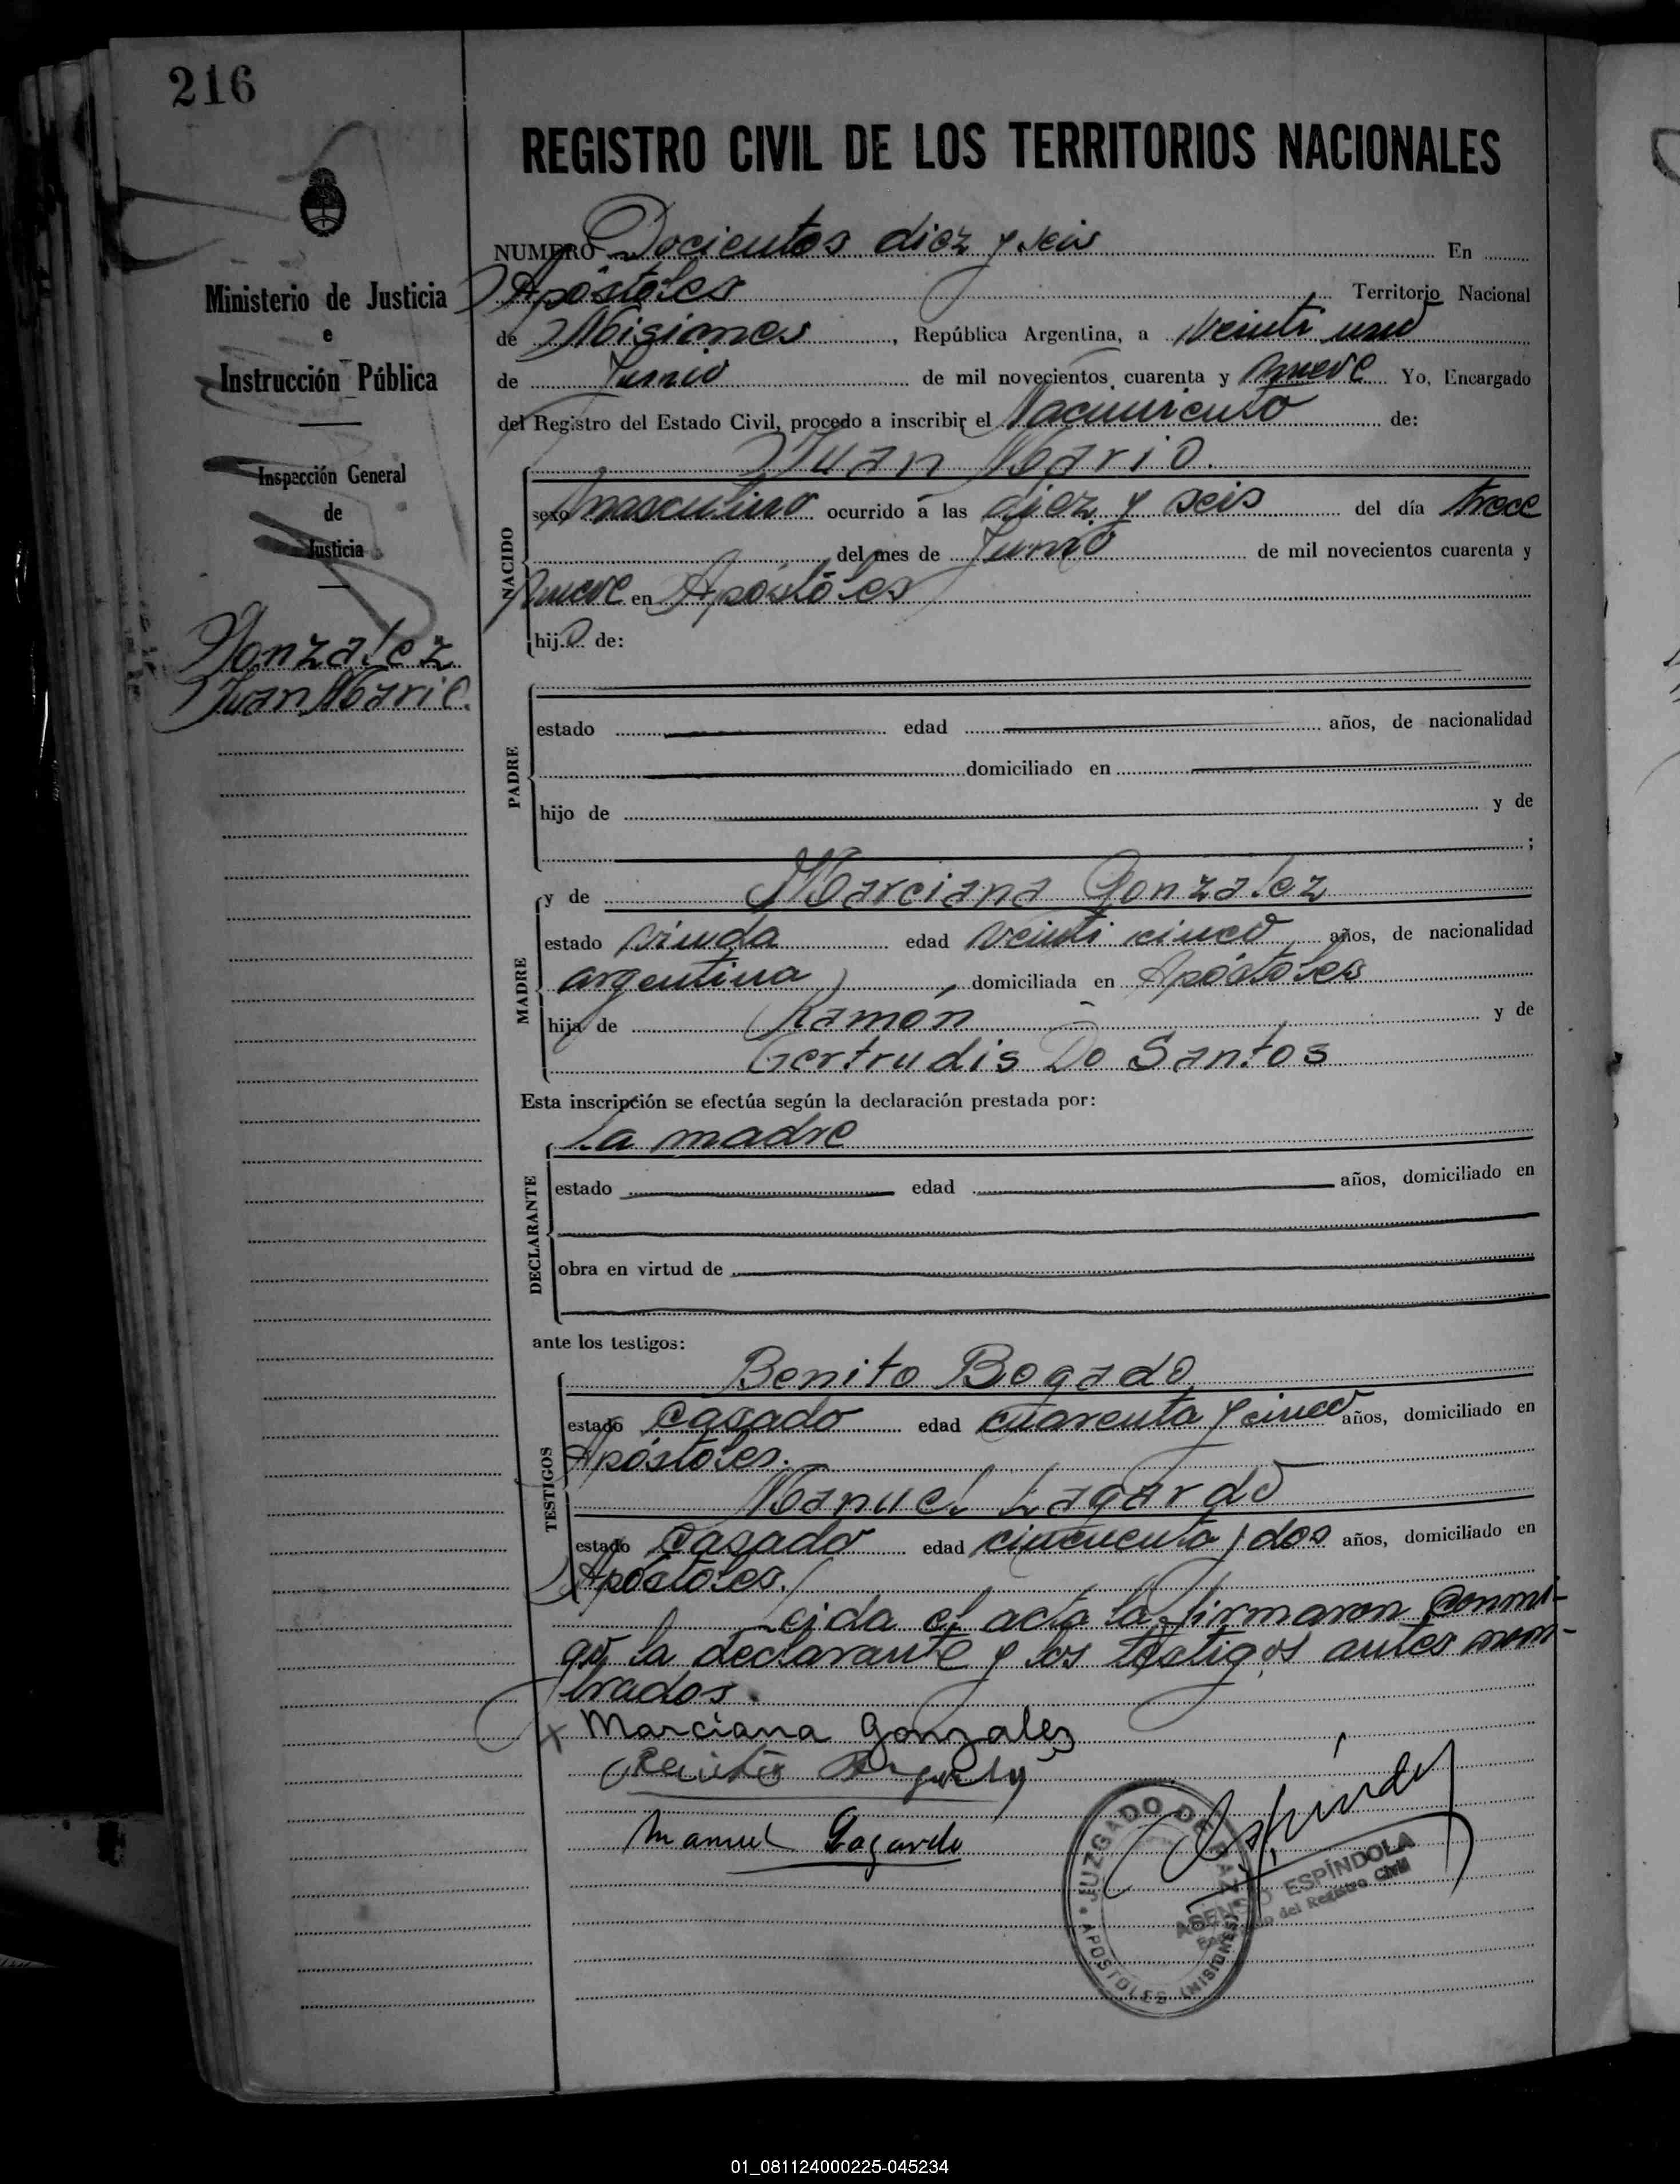 216
REGISTRO CIVIL DE LOS TERRITORIOS NACIONALES
Ministerio de Justicia
e
Instrucción Pública
Inspección General
de
Justicia
Gonzalez
Juan Mario.
NUMERO Docientos diez y seis En
Apóstoles Territorio Nacional
de Misiones, República Argentina, a veinti uno
de Junio de mil novecientos cuarenta y nueve Yo, Encargado
del Registro del Estado Civil, procedo a inscribir el Nacimiento de:
Juan Mario.
NACIDO
sexo masculino ocurrido a las diez y seis del día trece
del mes de Junio de mil novecientos cuarenta y
nueve en Apóstoles
hijo de:
PADRE
estado edad años, de nacionalidad
domiciliado en
hijo de y de
;
MADRE
y de Marciana Gonzalez
estado viuda edad veinti cinco años, de nacionalidad
argentina, domiciliada en Apóstoles
hija de Ramón y de
Gertrudis Do Santos
Esta inscripción se efectúa según la declaración prestada por:
DECLARANTE
la madre
estado edad años, domiciliado en
obra en virtud de
ante los testigos:
TESTIGOS
Benito Bogado
estado casado edad cuarenta y cinco años, domiciliado en
Apóstoles.
Manuel Lagardo
estado casado edad cincuenta y dos años, domiciliado en
Apóstoles.
Leida el acta la firmaron conmi-
go, la declarante y los testigos antes nom-
brados.
x Marciana Gonzalez
Manuel Lagardo
JUZGADO DE PAZ
APOSTOLES (MISIONES)
ASENCIO ESPÍNDOLA
Encargado del Registro Civil
01_081124000225-045234